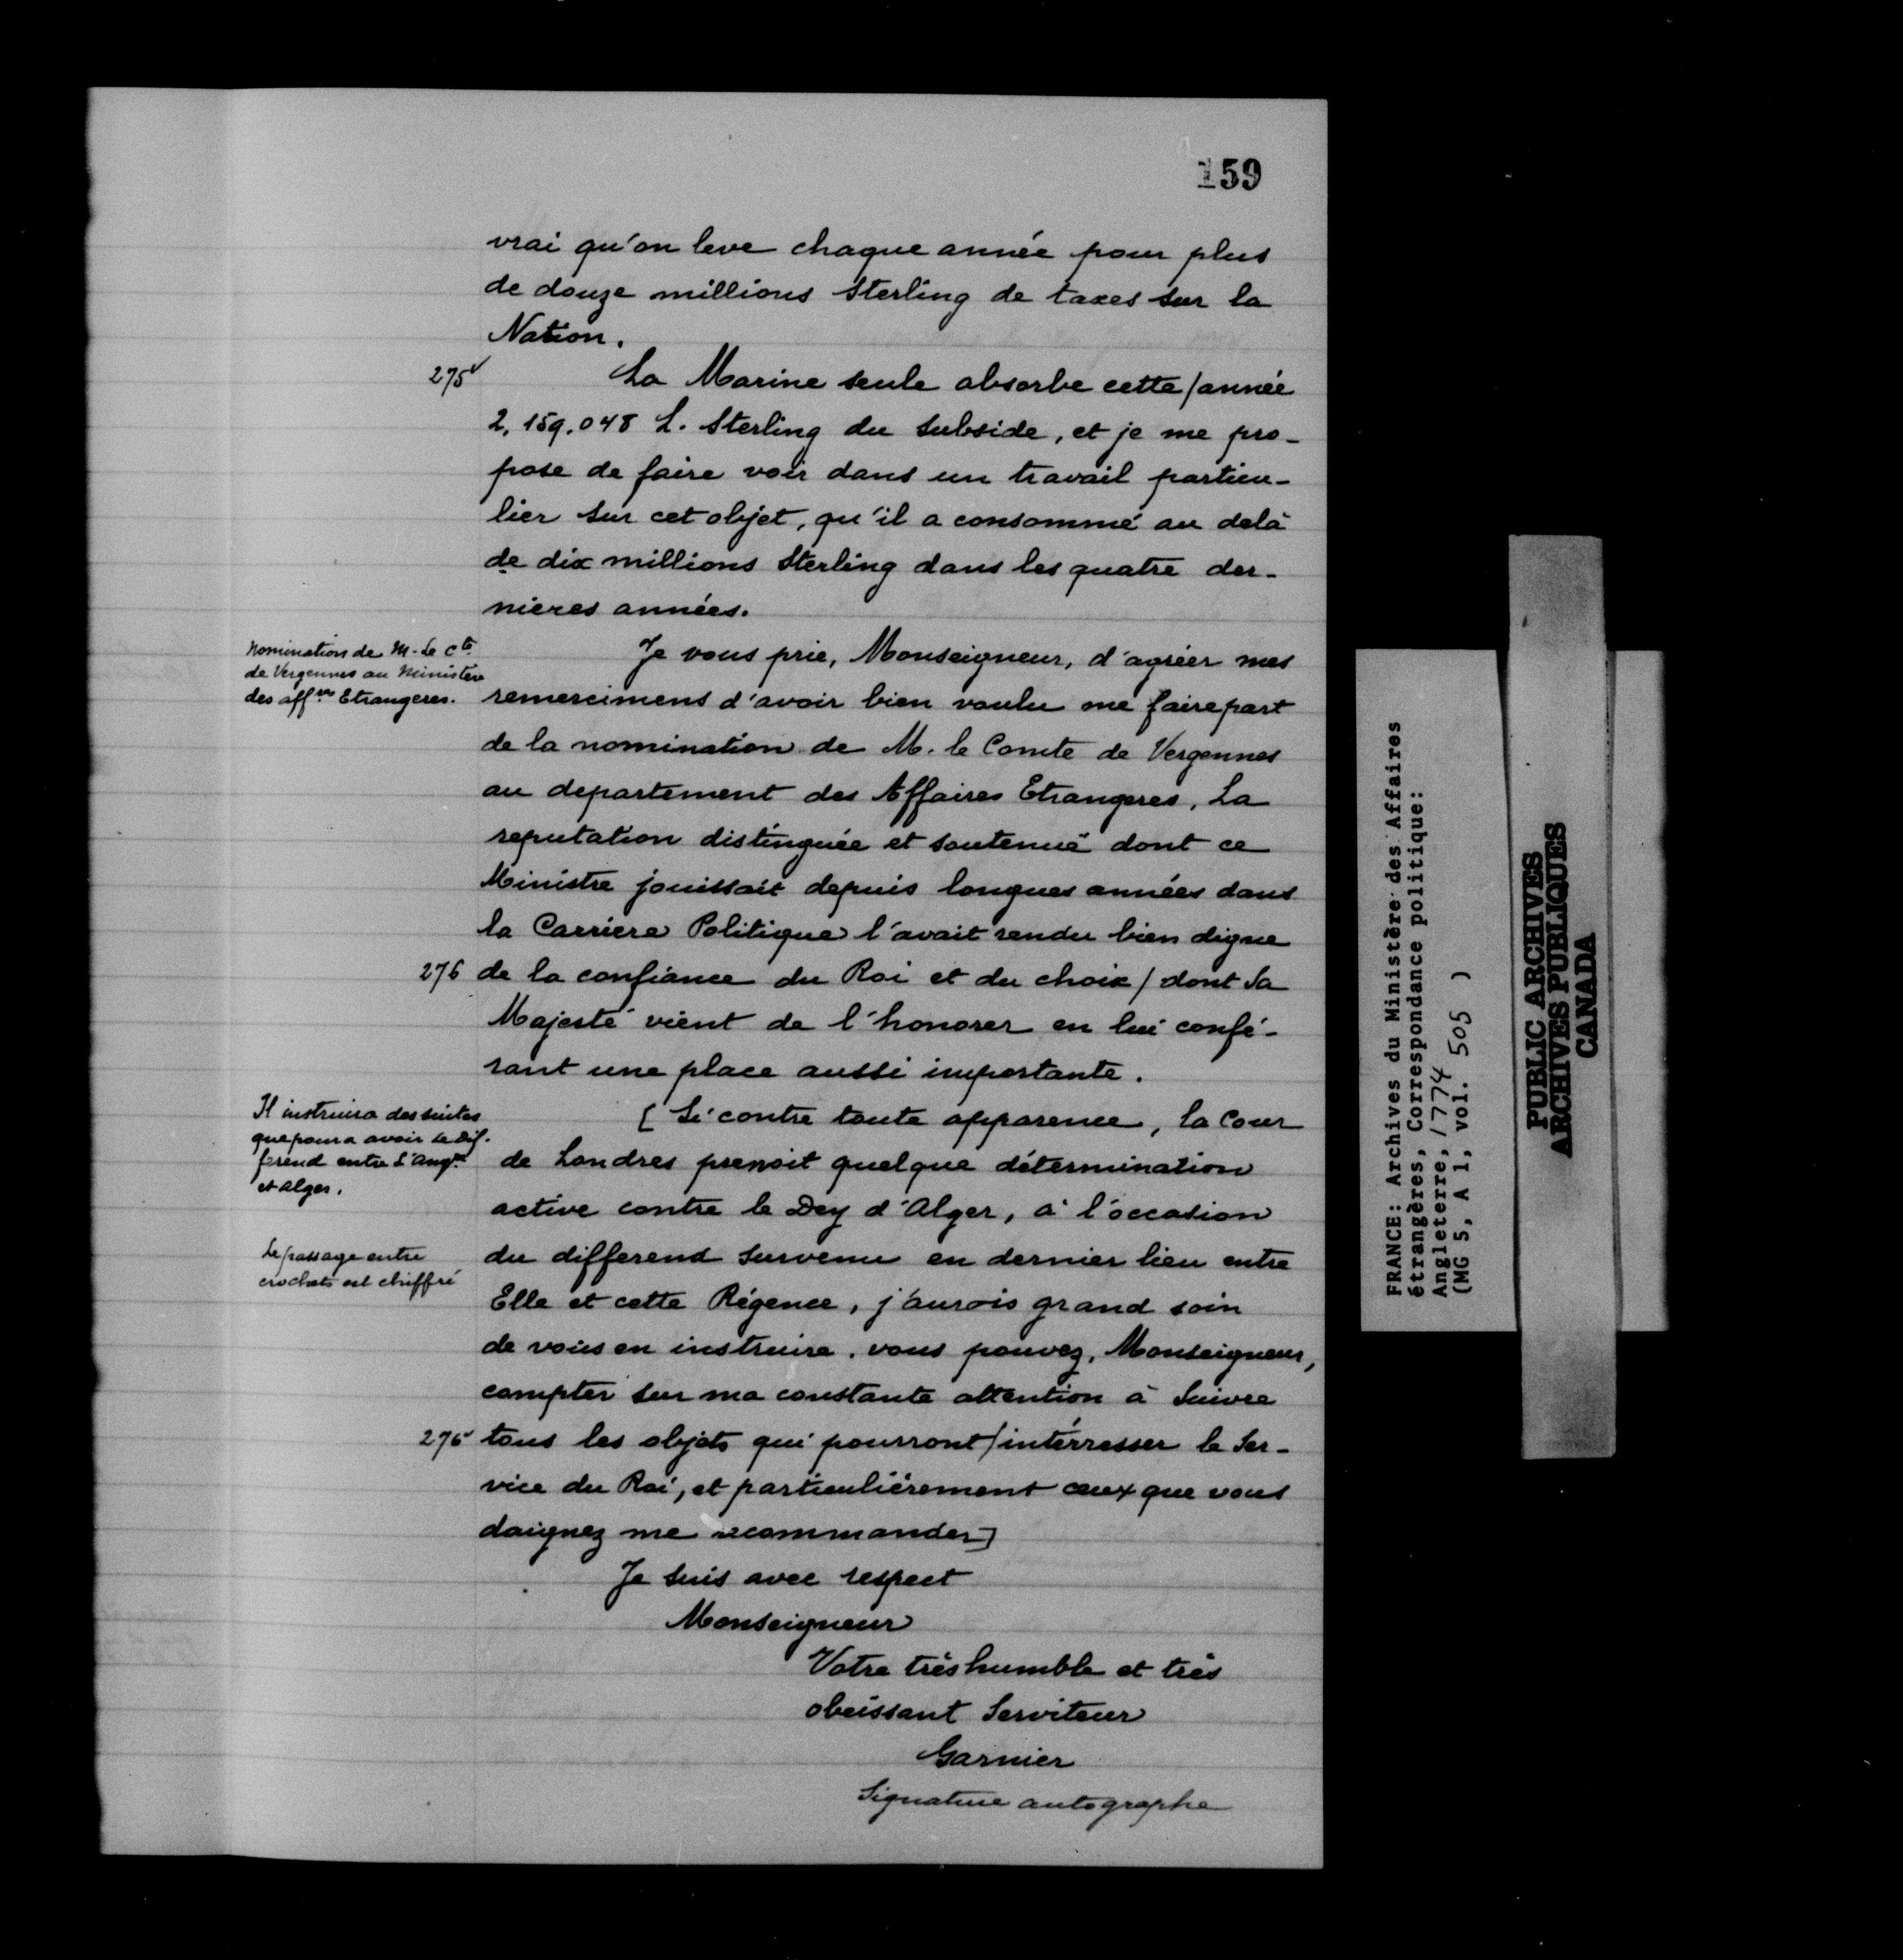 159
vrai qu'on leve chaque année pour plus
de douze millions Sterling de taxes sur la
Nation.
275v
La Marine seule absorbe cette/année
2,159.048 L. Sterling du Subside, et je me pro-
pose de faire voir dans un travail particu-
lier sur cet objet, qu'il a consommé au delà
de dix millions Sterling dans les quatre der-
nieres années.
Nomination de M. Le Cte
de Vergennes au Ministere
des affres Etrangeres.
Je vous prie, Monseigneur, d'agréer mes
remercimens d'avoir bien voulu me faire part
de la nomination de M. le Comte de Vergennes
au departement des Affaires Etrangeres. La
reputation distinguée et soutenuë dont ce
Ministre jouissait depuis longues années dans
la Carriere Politique l'avait rendu bien digne
276 de la confiance du Roi et du choix / dont Sa
Majesté vient de l'honorer en lui confé-
rant une place aussi importante.
Il instruira des suites
que poura avoir le dif-
ferend entre L'Angre
et Alger.
[ Si contre toute apparence, la Cour
de Londres prenoit quelque détermination
active contre le Dey d'Alger, à l'occasion
Le passage entre
crochets est chiffré
du differend survenu en dernier lieu entre
Elle et cette Régence, j'aurois grand soin
de vous en instruire. vous pouvez, Monseigneur,
compter sur ma constante attention à Suivre
276v tous les objets qui pourront/intérresser le Ser-
vice du Roi, et particuliérement ceux que vous
daignez me recommander]
Je suis avec respect
Monseigneur
Votre très humble et très
obeissant Serviteur
Garnier
Signature autographe
FRANCE: Archives du Ministère des Affaires
étrangères, Correspondance politique:
Angleterre, 1774
(MG 5, A 1, vol. 505 )
PUBLIC ARCHIVES
ARCHIVES PUBLIQUES
CANADA